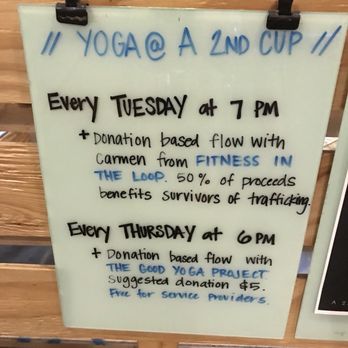 // YOGA @ A 2ND CUP //
Every TUESDAY at 7 PM
+ Donation based flow with
Carmen from FITNESS IN
THE LOOP. 50% of proceeds
benefits survivors of trafficking.
Every THURSDAY at 6 PM
+ Donation based flow with
THE GOOD YOGA PROJECT
Suggested donation $5.
Free for service providers.